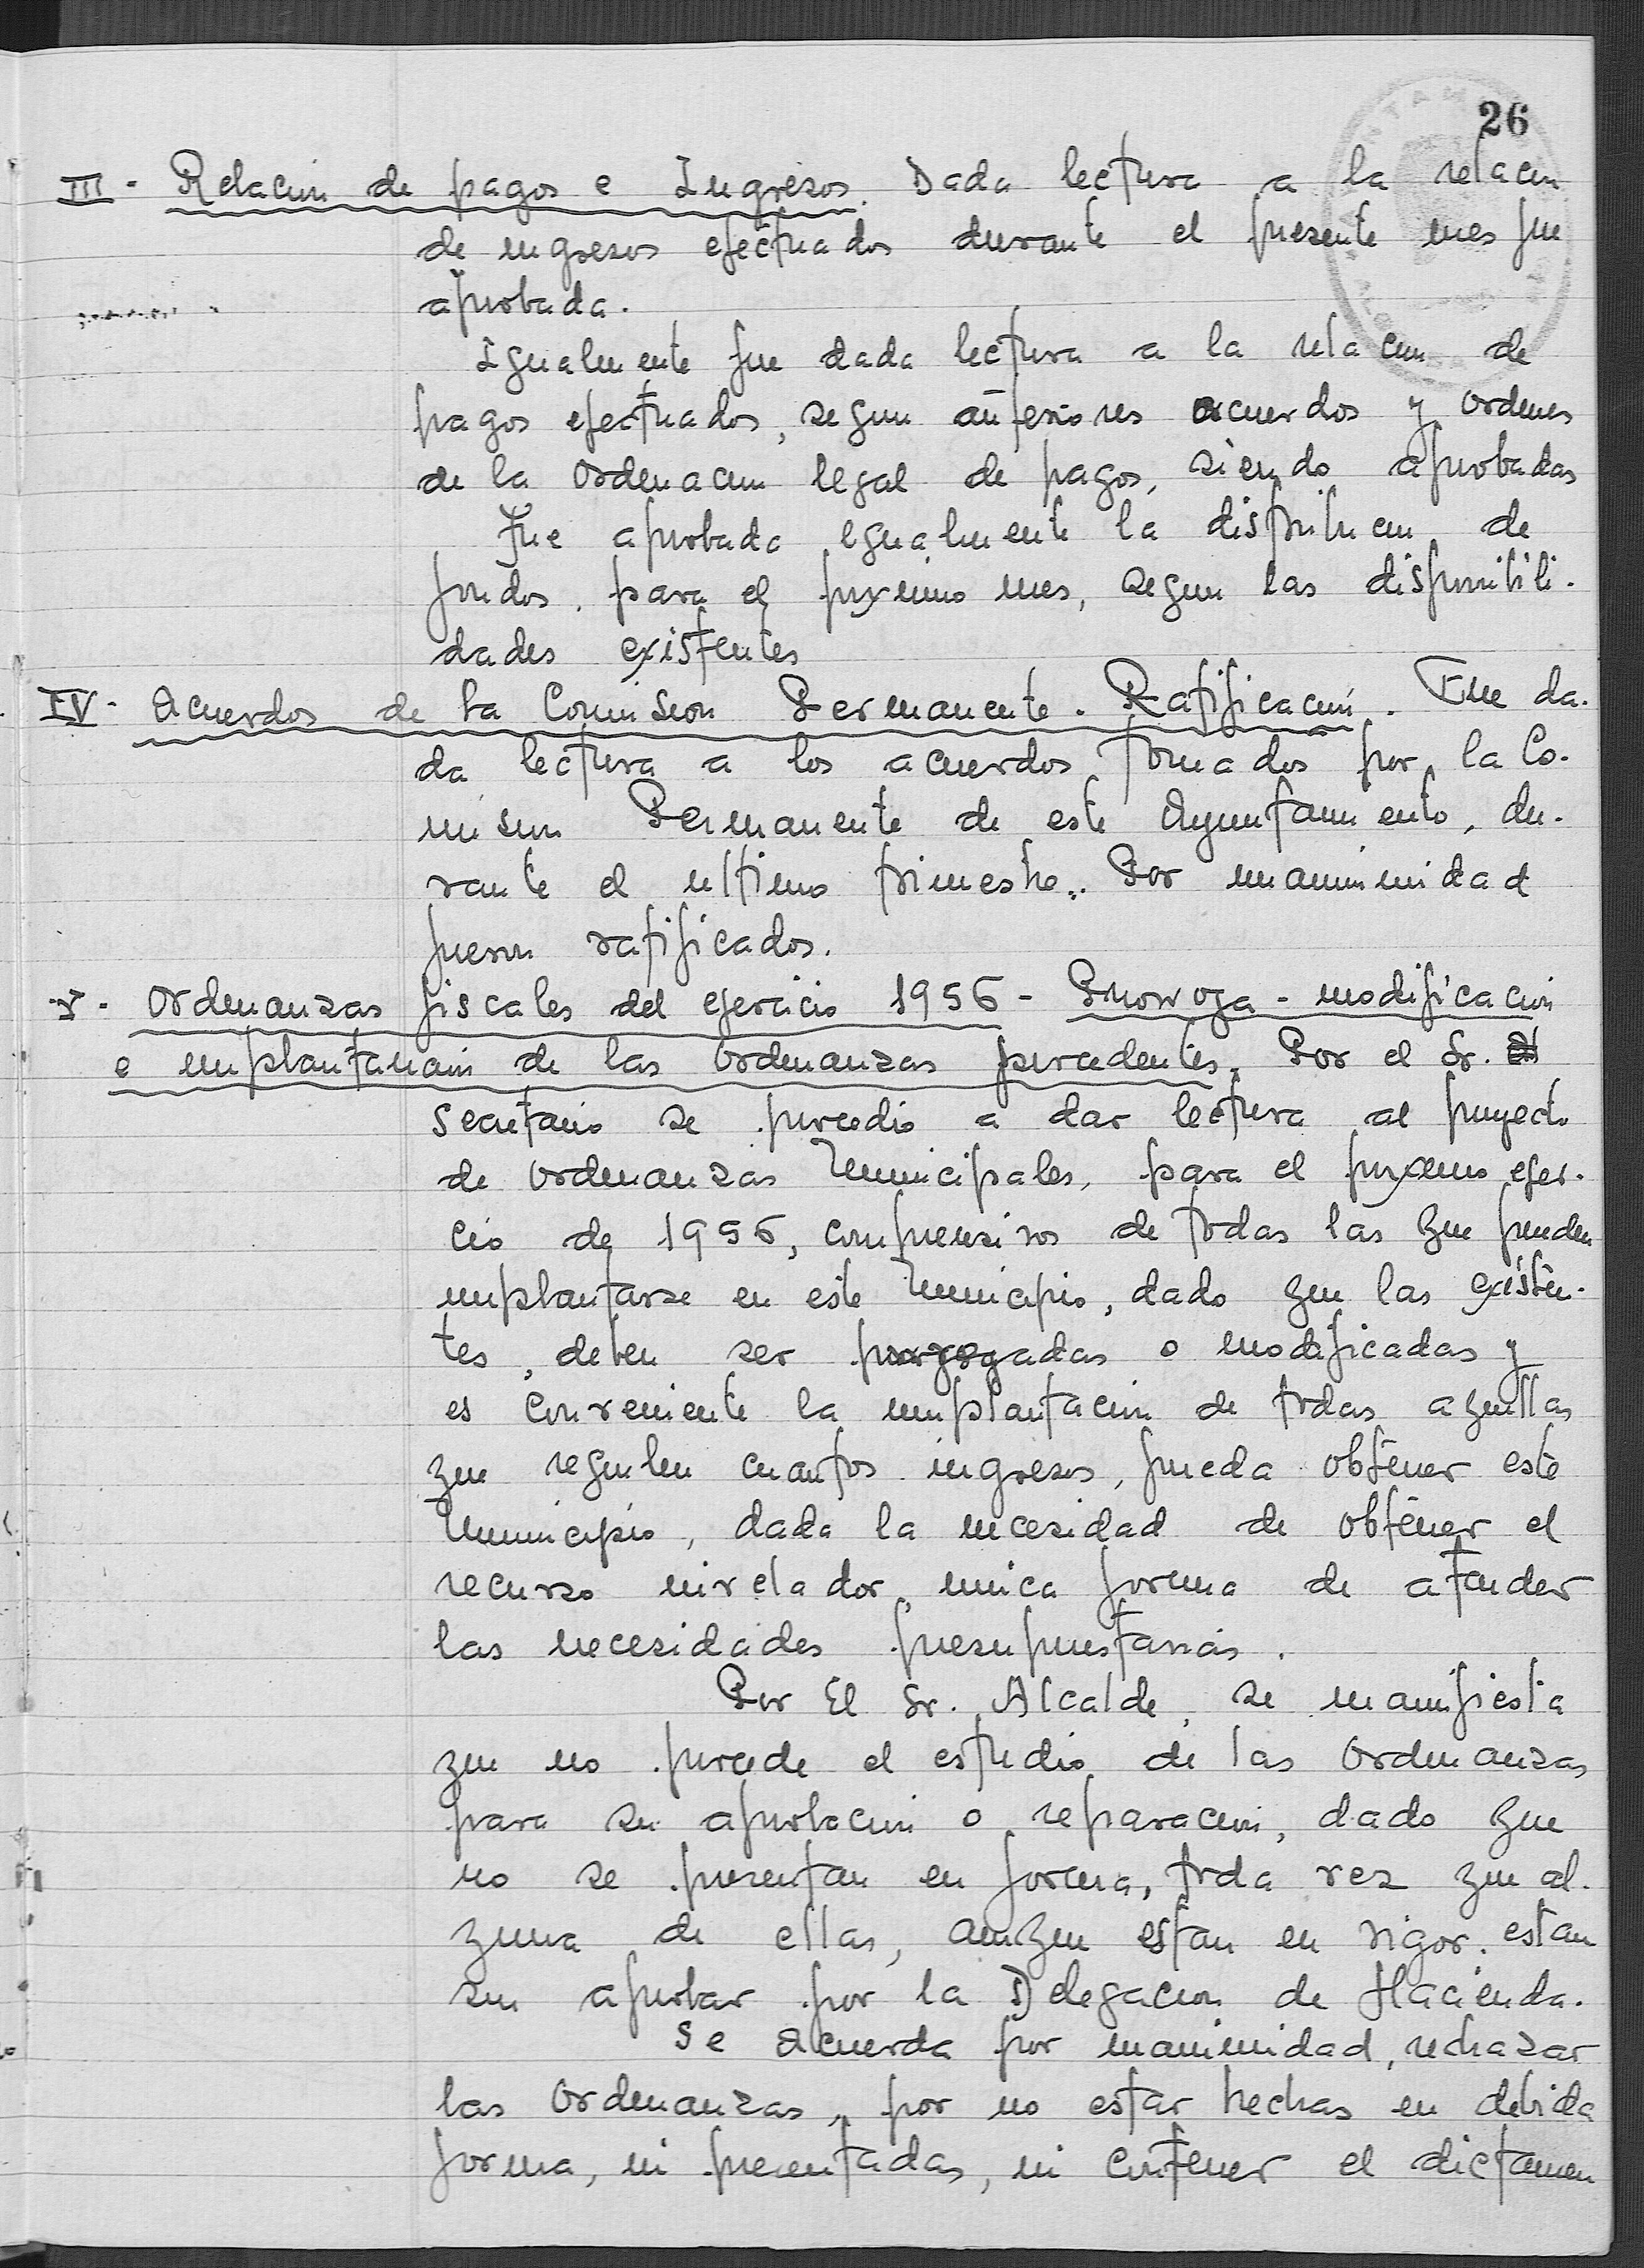 26
III - Relacion de pagos e Ingresos. Dada lectura a la relacion
de ingresos efectuados durante el presente mes fue
aprobada.
Igualmente fue dada lectura a la relacion de
pagos efectuados, segun anteriores acuerdos y ordenes
de la Ordenacion legal de pagos, siendo aprobadas
Fue aprobada igualmente la distribucion de
fondos, para el proximo mes, segun las disponibili-
dades existentes
IV - Acuerdos de la Comision Permanente. Ratificación. Fue da-
da lectura a los acuerdos tomados por la Co-
mision Permanente de este Ayuntamiento, du-
rante el ultimo trimestre. Por unanimidad
fueron ratificados.
V - Ordenanzas fiscales del ejercicio 1956 - Prorroga - modificación
e implantación de las Ordenanzas procedentes. Por el Sr.
Secretario se procedio a dar lectura al proyecto
de Ordenanzas Municipales, para el proximo ejer-
cio de 1956, comprensivos de todas las que pueden
implantarse en este Municipio, dado que las existen-
tes, deben ser prorrogadas o modificadas y
es conveniente la implantacion de todas aquellas
que regulen cuantos ingresos, pueda obtener este
Municipio, dada la necesidad de obtener el
recurso nivelador, unica forma de atender
las necesidades presupuestarias.
Por El Sr. Alcalde, se manifiesta
que no procede el estudio de las Ordenanzas
para su aprobacion o reparacion, dado que
no se presentan en forma, toda vez que al-
guna de ellas, aunque estan en vigor, estan
sin aprobar por la Delegacion de Hacienda.
Se Acuerda por unanimidad, rechazar
las Ordenanzas, por no estar hechas en debida
forma, ni presentadas, ni contener el dictamen